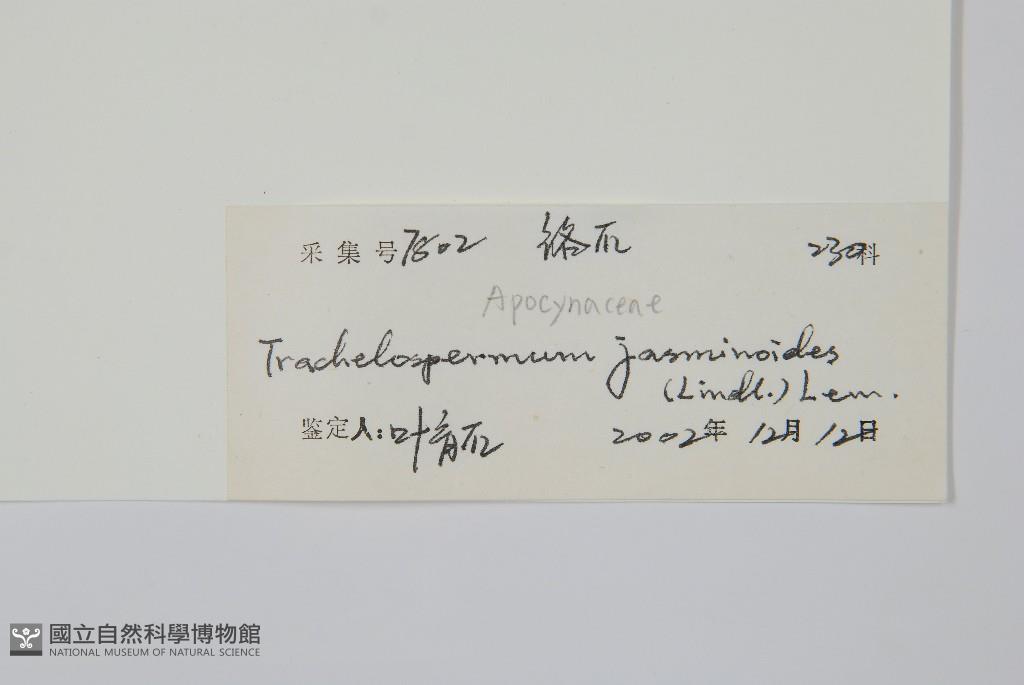 采集号 7502 络石 230科
Apocynaceae
Trachelospermum jasminoides
(Lindl.) Lem.
鉴定人: 叶育石 2002年 12月 12日
國立自然科學博物館
NATIONAL MUSEUM OF NATURAL SCIENCE